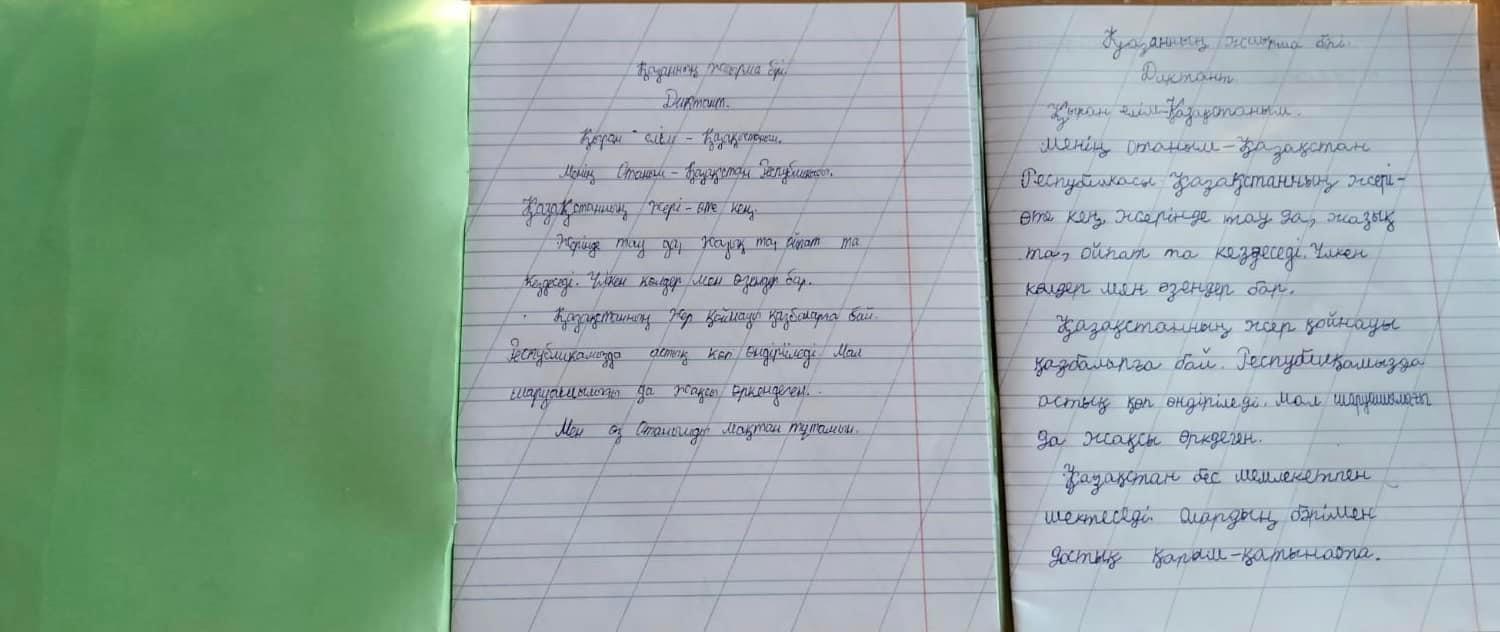 Қазанның жиырма бірі.
Диктант.
Қыран елім - Қазақстаным.
Менің Отаным - Қазақстан Республикасы.
Қазақстанның жері - өте кең.
Жерінде тау да, жазық та, ойпат та
кездеседі. Үлкен көлдер мен өзендер бар.
Қазақстанның жер қойнауы қазбаларға бай.
Республикамызда астық көп өндіріледі. Мал
шаруашылығы да жақсы өркендеген.
Мен өз Отанымды мақтан тұтамын.
Қазанның жиырма бірі.
Диктант
Қыран елім-Қазақстаным.
Менің отаным-Қазақстан
Республикасы. Қазақстанның жері-
өте кең, жерінде тау да, жазық
та, ойпат та кездеседі. Үлкен
көлдер мен өзендер бар.
Қазақстанның жер қойнауы
қазбаларға бай. Республикамызда
астық көп өндіріледі. Мал шаруашылығы
да жақсы өркдеген.
Қазақстан бес мемлекетпен
шектеседі. Олардың бәрімен
достық қарым-қатынаста.